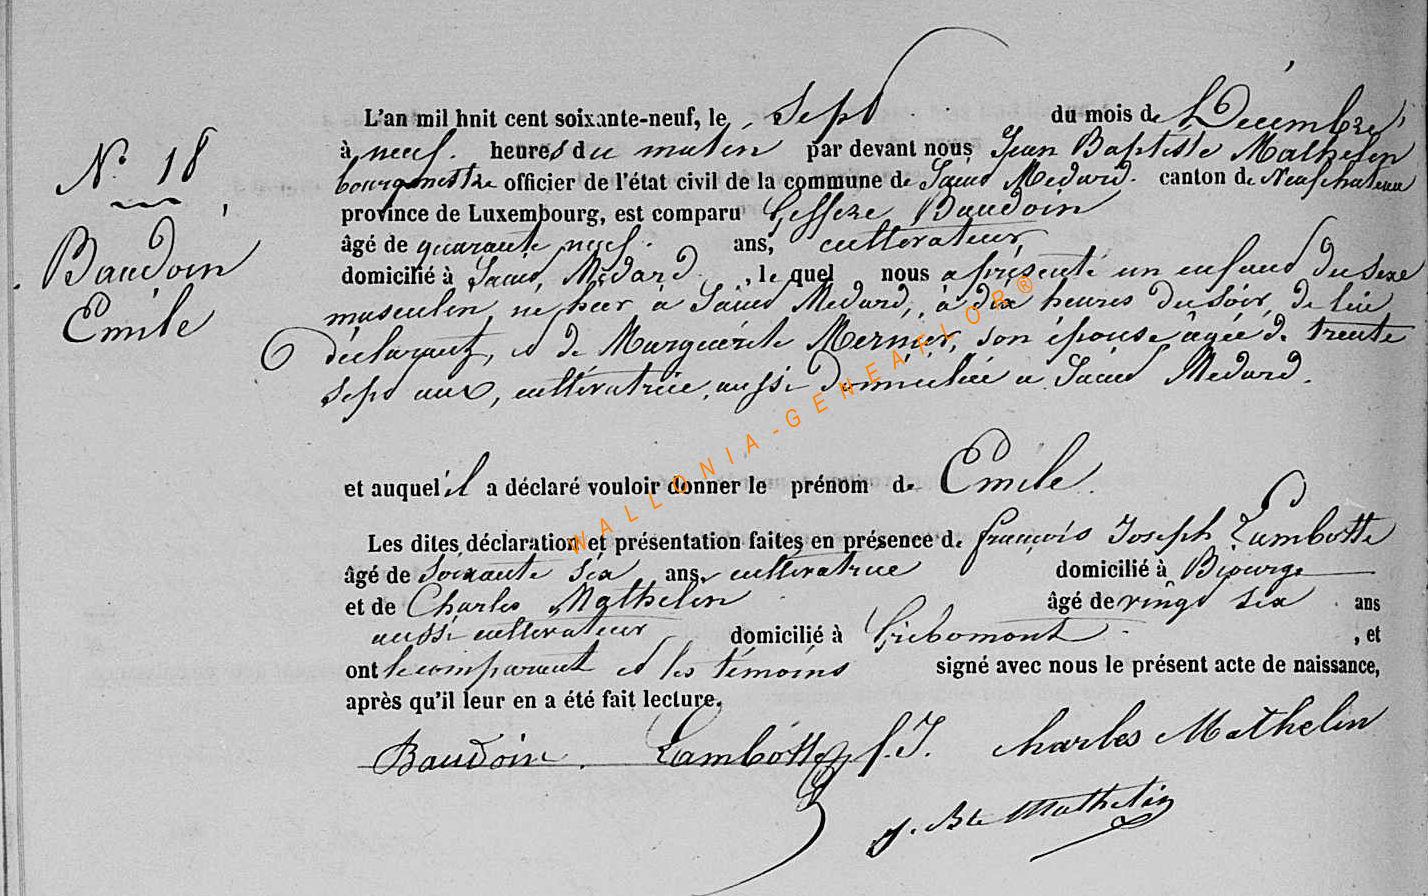 N° 18
Baudoin
Emile
L'an mil huit cent soixante-neuf, le Sept du mois de Décembre,
à neuf heures du matin par devant nous Jean Baptiste Mathelin
bourgmestre officier de l'état civil de la commune de Saint Médard canton de Neufchateau
province de Luxembourg, est comparu Baudoin
âgé de quarante neuf ans, cultivateur,
domicilié à Saint Médard, le quel nous a présenté un enfant du sexe
masculin, né hier à Saint Médard, à dix heures du soir, de lui
déclarant, et de Marguérite Mernier, son épouse âgée de trente
sept ans, cultivatrice, aussi domiciliée à Saint Médard.
et auquel il a déclaré vouloir donner le prénom de Emile
Les dites déclaration et présentation faites en présence de françois Joseph Lambotte
âgé de Soixante six ans, cultivatrice domicilié à Biourge
et de Charles Mathelin âgé de vingt six ans
aussi cultivateur domicilié à Gribomont, et
ont le comparant et les témoins signé avec nous le présent acte de naissance,
après qu'il leur en a été fait lecture.
Baudoin. Lambotte f. J. Charles Mathelin
J. Bte Mathelin
WALLONIA-GENEAFLOR®